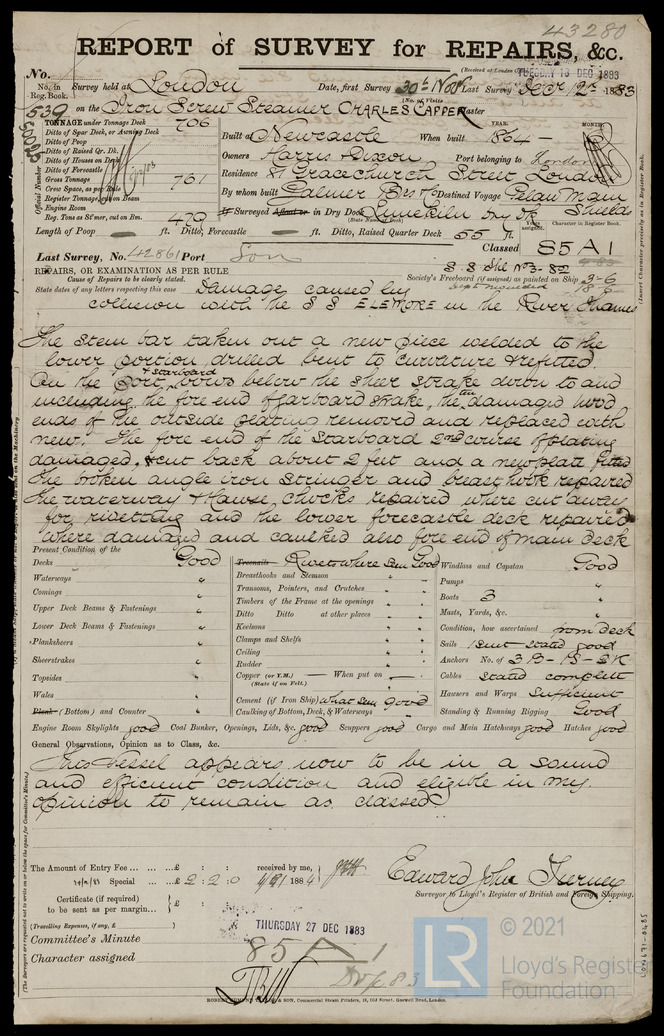 43280
REPORT of SURVEY for REPAIRS, &c.
(Received at London
TUESDAY 18 DEC 1883
No.
No. in Reg. Book.
Survey held at London Date, first Survey 30th Nov Last Survey Decr 1883
(No. of Visits
539 on the Iron Screw Steamer CHARLES CAPPER Master
TONNAGE under Tonnage Deck 706
Ditto of Spar Deck, or Awning Deck
Ditto of Poop
Ditto of Raised Qr. Dk.
Ditto of Houses on Deck
Ditto of Forecastle
Gross Tonnage 761
Crew Space, as per Rule
Register Tonnage, cut on Beam
Engine Room
Reg. Tons as St'mer, cut on Bm. 479
Official Number
YEAR. MONTH.
Built at Newcastle When built 1864
Owners Harris & Dixon Port belonging to London
Residence 81 Gracechurch Street London
By whom built Palmer Bros & Co Destined Voyage Pelaw Main
Shields
If Surveyed Afloat or in Dry Dock Limekiln Dry Dk
Character in Register Book.
Length of Poop — ft. Ditto, Forecastle — ft. Ditto, Raised Quarter Deck 55 ft.
Classed 85 A1
Last Survey, No. 42861 Port Lon
REPAIRS, OR EXAMINATION AS PER RULE
Cause of Repairs to be clearly stated.
State dates of any letters respecting this case
Society's Freeboard (if assigned) as painted on Ship 3-6
Damage caused by
collision with the S S ELEMORE in the River Thames
The stem bar taken out a new piece welded to the
lower portion, drilled bent to curvature & refitted.
On the Port & Starboard bows below the sheer strake down to and
including the fore end of garboard strake, the ten damaged hood
ends of the outside plating removed and replaced with
new. The fore end of the Starboard 2nd course of plating
damaged, & cut back about 2 feet and a new plate fitted
the broken angle iron Stringer and breast hook repaired
the waterway & Hawse chocks repaired where cut away
for rivetting and the lower forecastle deck repaired
where damaged and caulked also fore end of main deck
Present Condition of the
Decks Good
Waterways "
Comings "
Upper Deck Beams & Fastenings "
Lower Deck Beams & Fastenings "
Planksheers "
Sheerstrakes "
Topsides "
Wales "
Plank (Bottom) and Counter "
Treenails Rivets where seen Good
Breasthooks and Stemson "
Transoms, Pointers, and Crutches "
Timbers of the Frame at the openings "
Ditto Ditto at other places "
Keelsons "
Clamps and Shelfs "
Ceiling "
Rudder "
Copper (or Y.M.) — When put on —
(State if on Felt.)
Cement (if Iron Ship) what seen good
Caulking of Bottom, Deck, & Waterways "
Windlass and Capstan Good
Pumps "
Boats 3 "
Masts, Yards, &c. "
Condition, how ascertained from deck
Sails 1 suit stated good
Anchors No. of 3 B - 1 S - 2 K
Cables stated complete
Hawsers and Warps Sufficient
Standing & Running Rigging Good
Engine Room Skylights good Coal Bunker, Openings, Lids, &c. good Scuppers good Cargo and Main Hatchways good Hatches good
General Observations, Opinion as to Class, &c.
This Vessel appears now to be in a sound
and efficient condition and eligible in my
opinion to remain as classed
The Amount of Entry Fee ... ... £ : : received by me,
Special ... ... £ 2 : 2 : 0 1884
Certificate (if required) to be sent as per margin... } £ : :
(Travelling Expenses, if any, £ )
Edward John Tierney
Surveyor to Lloyd's Register of British and Foreign Shipping.
THURSDAY 27 DEC 1883
Committee's Minute
Character assigned 85 A 1
ROBERT EDMUND TAYLOR & SON, Commercial Steam Printers, 19, Old Street, Goswell Road, London.
LR
© 2021
Lloyd's Register
Foundation